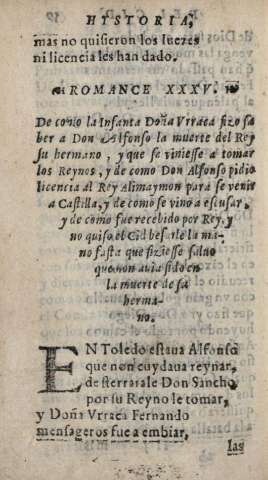 HYSTORIA,
mas no quisieron los Iueres
ni licencia les han dado.
ROMANCE XXXV.
De como la Infanta Doña Vrraca fizo sa
ber a Don Alfonso la muerte del Rey
su hermano, y que se viniesse a tomar
los Reynos, y de como Don Alfonso pidio
licencia al Rey Alimaymon para se venir
a Castilla, y de como se vino a escusar,
y de como fue recebido por Rey, y
no quiso el Cid besarle la ma-
no fasta que fiziesse saluo
que non auia sido en
la muerte de su
herma-
no.
EN Toledo estaua Alfonso
que non cuydaua reynar,
desterrarale Don Sancho
por su Reyno le tomar,
y Doña Vrraca Fernando
mensageros fue a embiar,
las